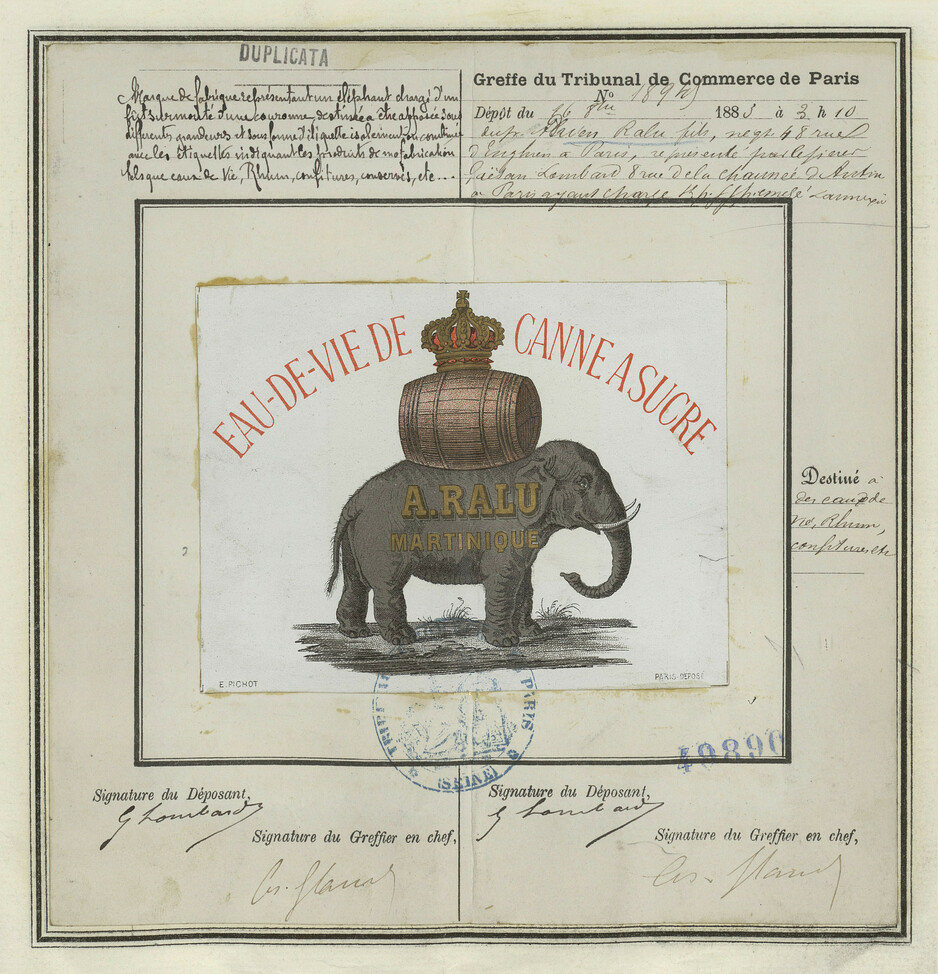 DUPLICATA
Marque de fabrique représentant un éléphant chargé d'un
fût surmonté d'une couronne, destinée à être apposée sous
différents grandeurs et sous forme d'étiquette isolément ou combinée
avec les étiquettes indiquant les produits de ma fabrication
tels que eaux de Vie, Rhum, confitures, conserves, etc...
Greffe du Tribunal de Commerce de Paris
No
Dépôt du 16 8bre 1883 à 3 h 10
Ralu fils, negt 48 rue
d'Enghien à Paris, représenté par le sieur
Gaëtan Lombard 8 rue de la chaussée d'Antin
à Paris ayant charge
EAU-DE-VIE DE CANNE A SUCRE
A. RALU
MARTINIQUE
E. PICHOT
PARIS DEPOSÉ
Destiné à
des eaux de
Vie, Rhum,
confitures, etc
PARIS
(SEINE)
49890
Signature du Déposant,
G Lombard
Signature du Greffier en chef,
Signature du Déposant,
G Lombard
Signature du Greffier en chef,